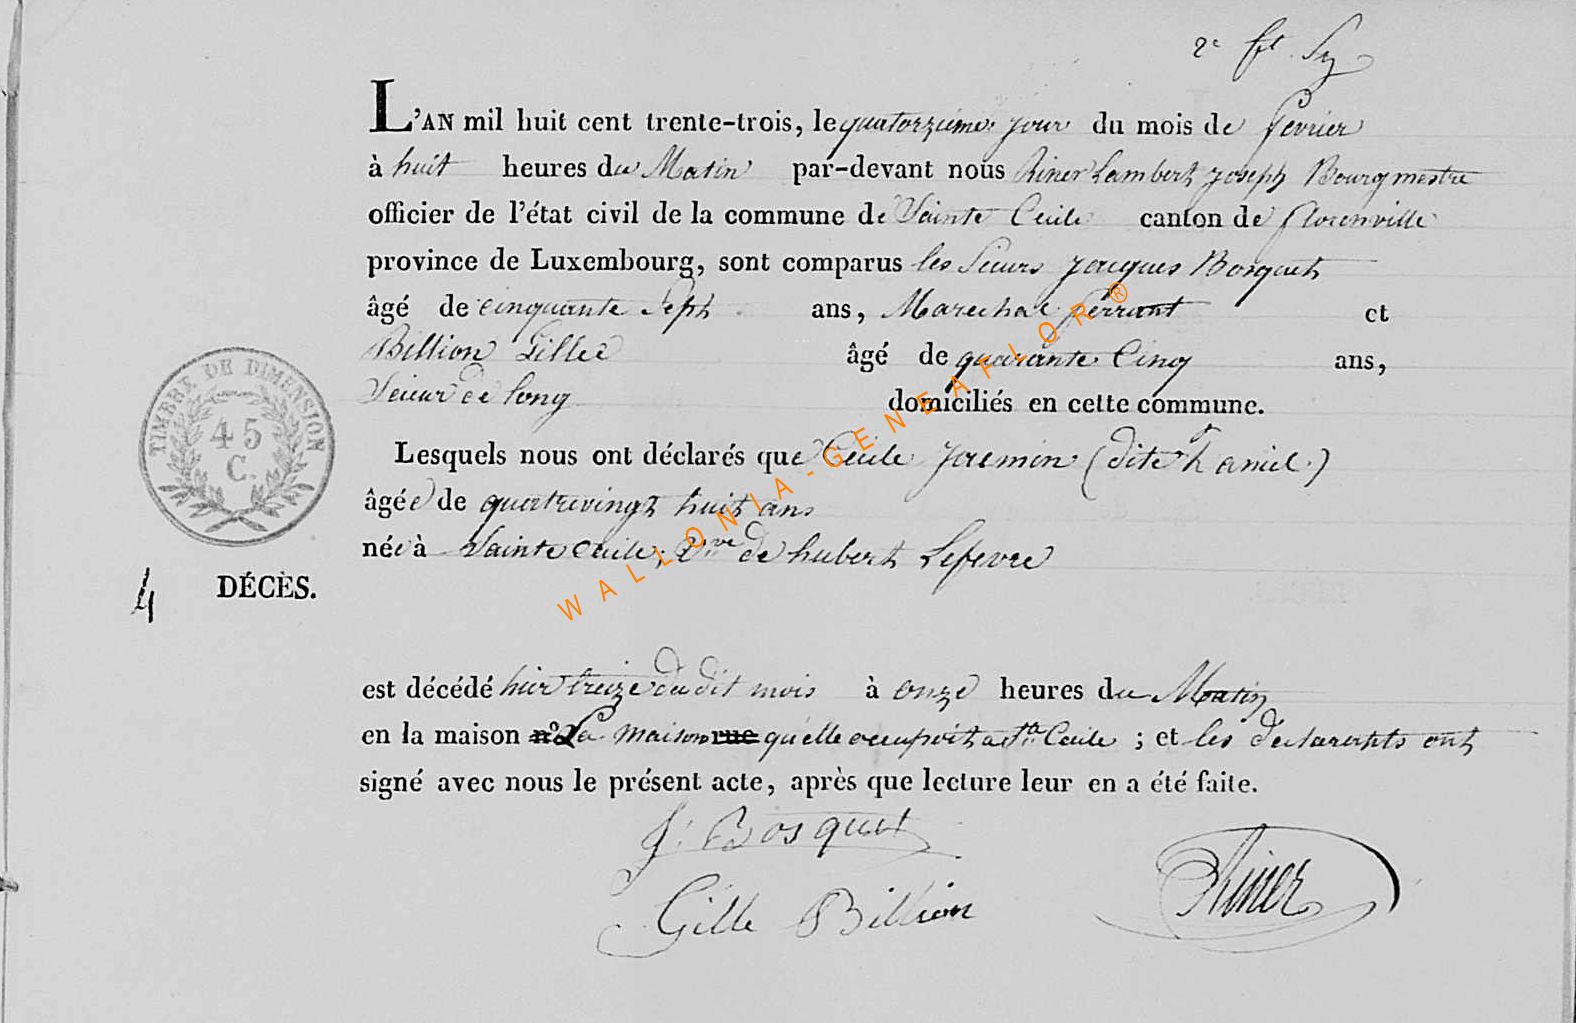 2e ft. Sy
L'AN mil huit cent trente-trois, le quatorzieme jour du mois de fevrier
à huit heures du Matin par-devant nous Riner Lambert joseph Bourgmestre
officier de l'état civil de la commune de Sainte Cecile canton de florenville
province de Luxembourg, sont comparus les Sieurs jacques Bosquet
âgé de cinquante Sept ans, Marechal ferrant et
Billion Gille âgé de quarante Cinq ans,
Scieur de long domiciliés en cette commune.
Lesquels nous ont déclarés que Cecile jacmin (dite hamiel.)
âgée de quatrevingt huit ans
née à Sainte Cecile, Vve de hubert Lefevre
4 DÉCÈS.
est décédé hier treize du dit mois à onze heures du Matin
en la maison n° La maison rue qu'elle occupoit a Ste Cecile ; et les declarents ont
signé avec nous le présent acte, après que lecture leur en a été faite.
J. Bosquet
Riner
Gille Billion
TIMBRE DE DIMENSION
45
C.
WALLONIA-GENEAFLOR®